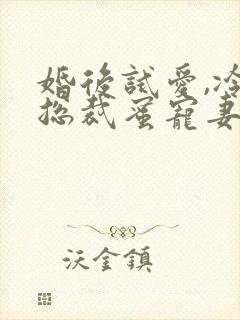 婚後試愛,冷
總裁蜜寵妻
沃金鎮